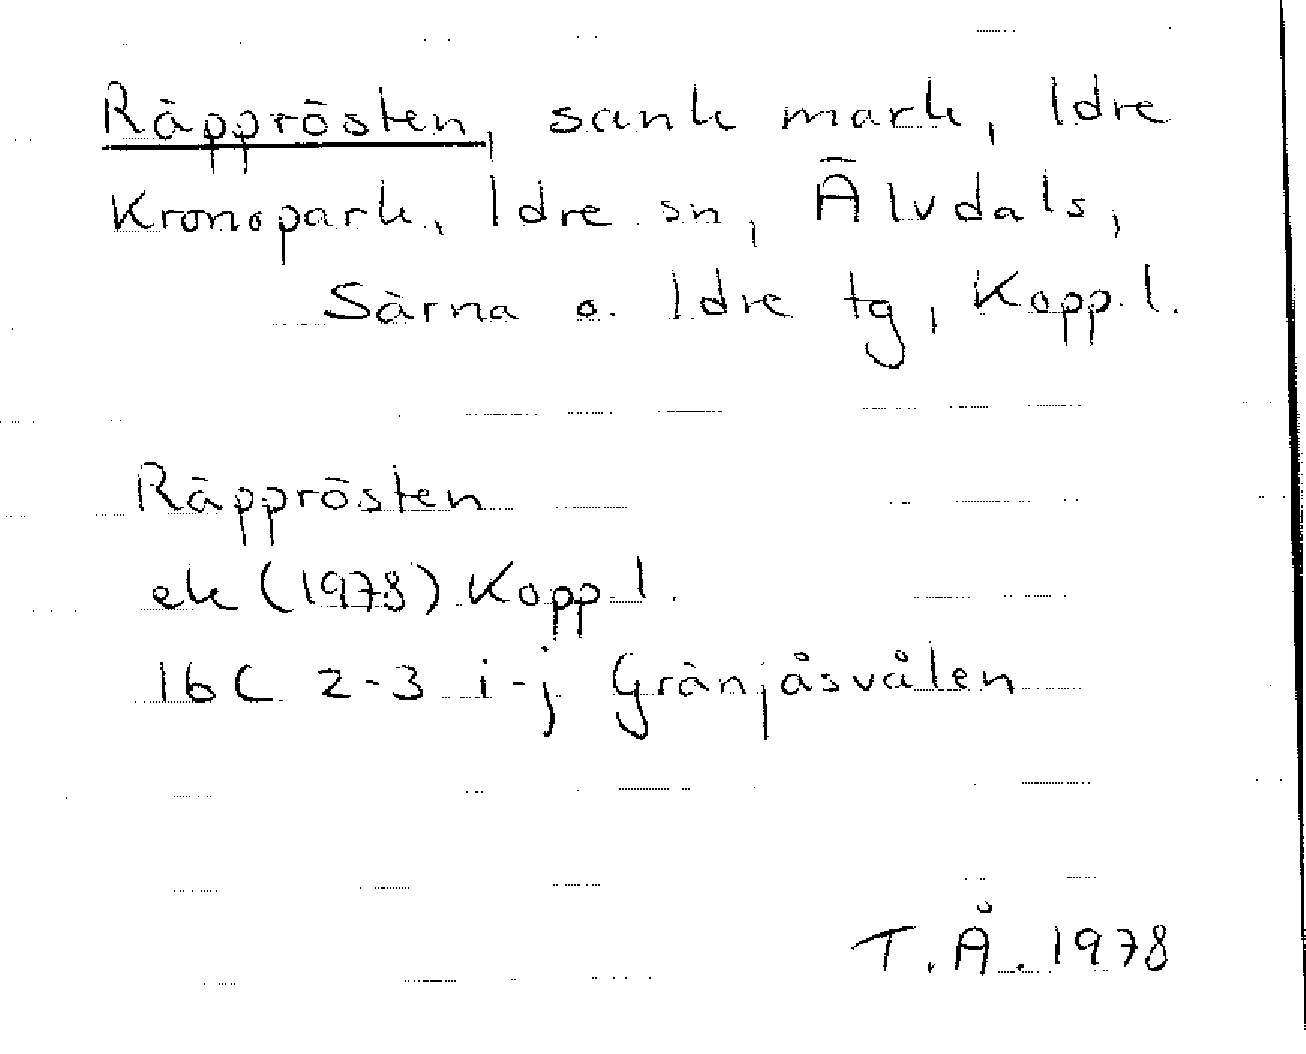 Räpprösten, sank mark, Idre
Kronopark, Idre sn, Älvdals,
Särna o. Idre tg, Kopp. l.
Räpprösten
ek (1978) Kopp. l.
16C 2-3 i-j Gränjåsvålen
T.Å. 1978